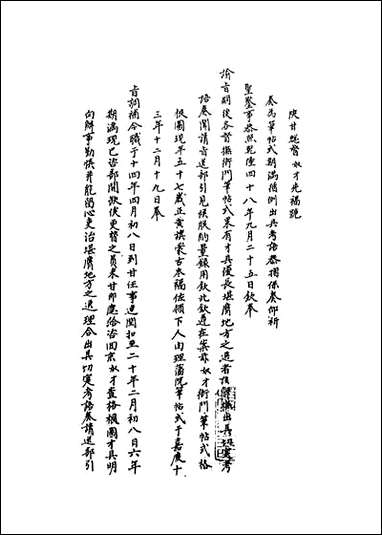 陝甘總督奴才先福跪
奏為筆帖式期滿循例出具考語恭摺保奏仰祈
聖鑒事恭照乾隆四十八年九月二十五日欽奉
諭旨嗣後各督撫衙門筆帖式果有才具優長堪膺地方之選者 出具切實考
語奏聞請旨送部引見候朕酌量錄用欽此欽遵在案茲奴才衙門筆帖式格
板圖現年五十七歲正黃旗蒙古 福佐領下人由理藩院筆帖式于嘉慶十
三年十二月十九日奉
旨調補今職于十四年四月初八日到甘任事連閏扣至二十年二月初八日六年
期滿現已咨部開缺俟更替之員來甘即應給咨回京奴才查格板圖才具明
向辦事勤慎并能留心吏治堪膺地方之選理合出具切實考語奏請送部引